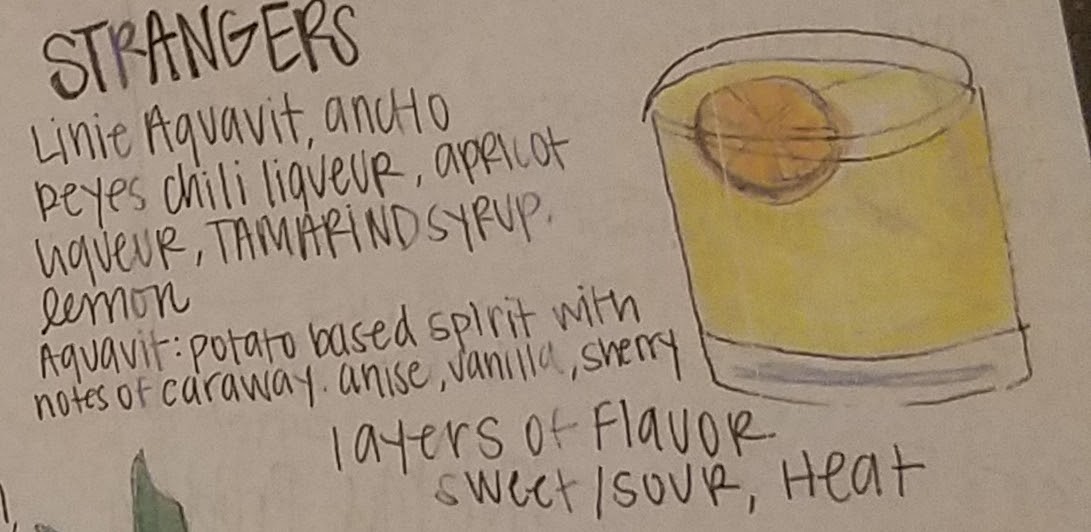 STRANGERS
Linie Aquavit, ancho
reyes chili liqueur, apricot
liqueur, TAMARIND SYRUP.
lemon
Aquavit: potato based spirit with
notes of caraway. anise, vanilla, sherry
layers of Flavor
sweet/sour, Heat